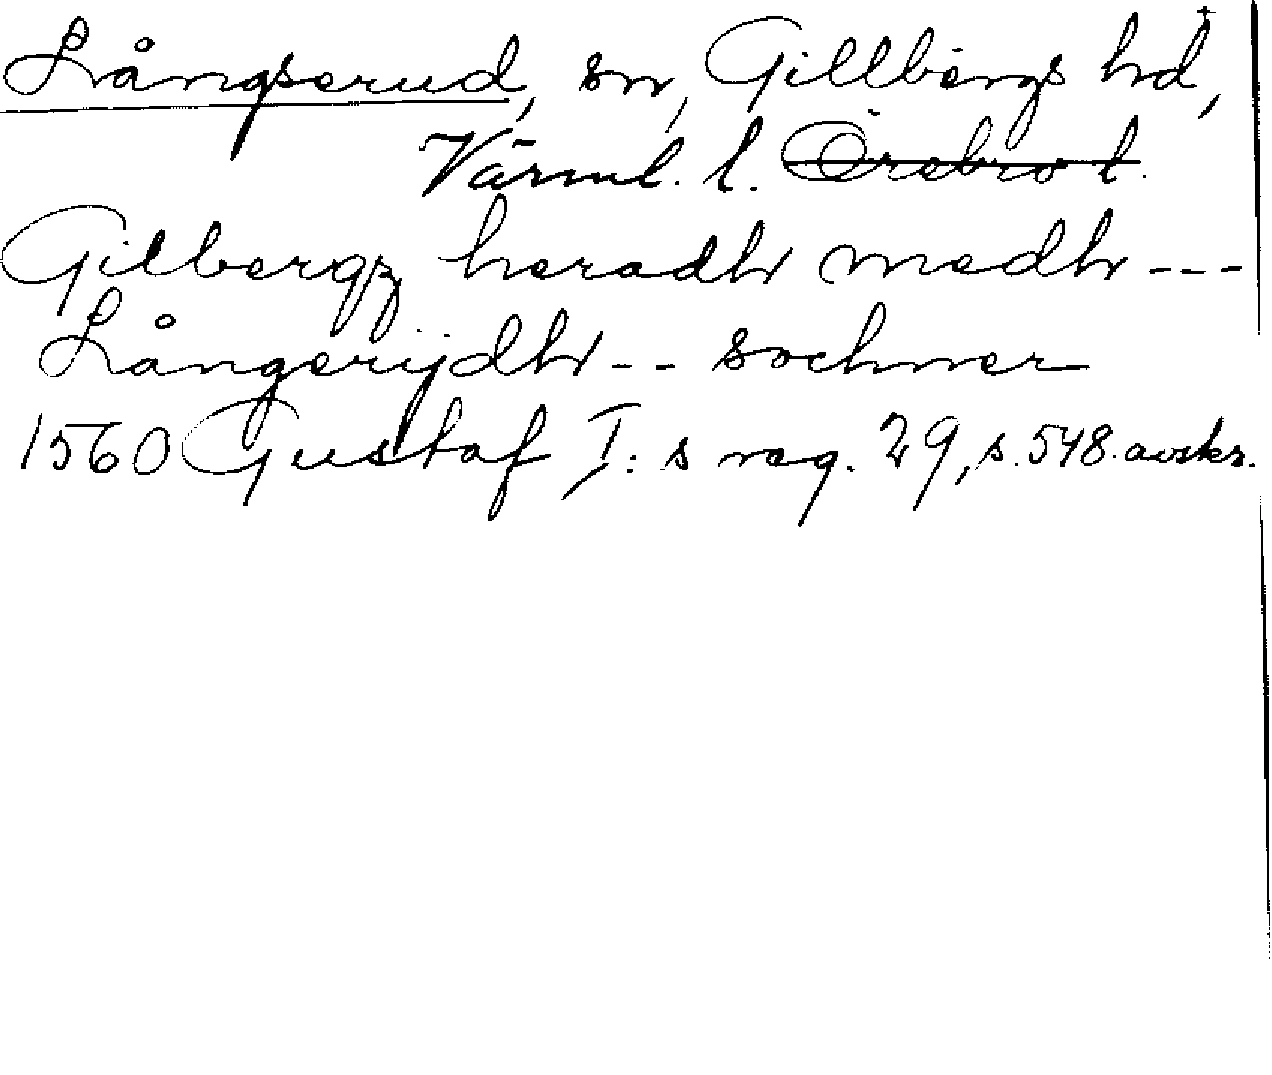 Långserud, sn, Gillbergs hd,
Värml. l. Örebro l.
Gilbergz heradh medh ---
Långerÿdh -- sochner
1560 Gustaf I: s reg. 29, s. 548. avskr.